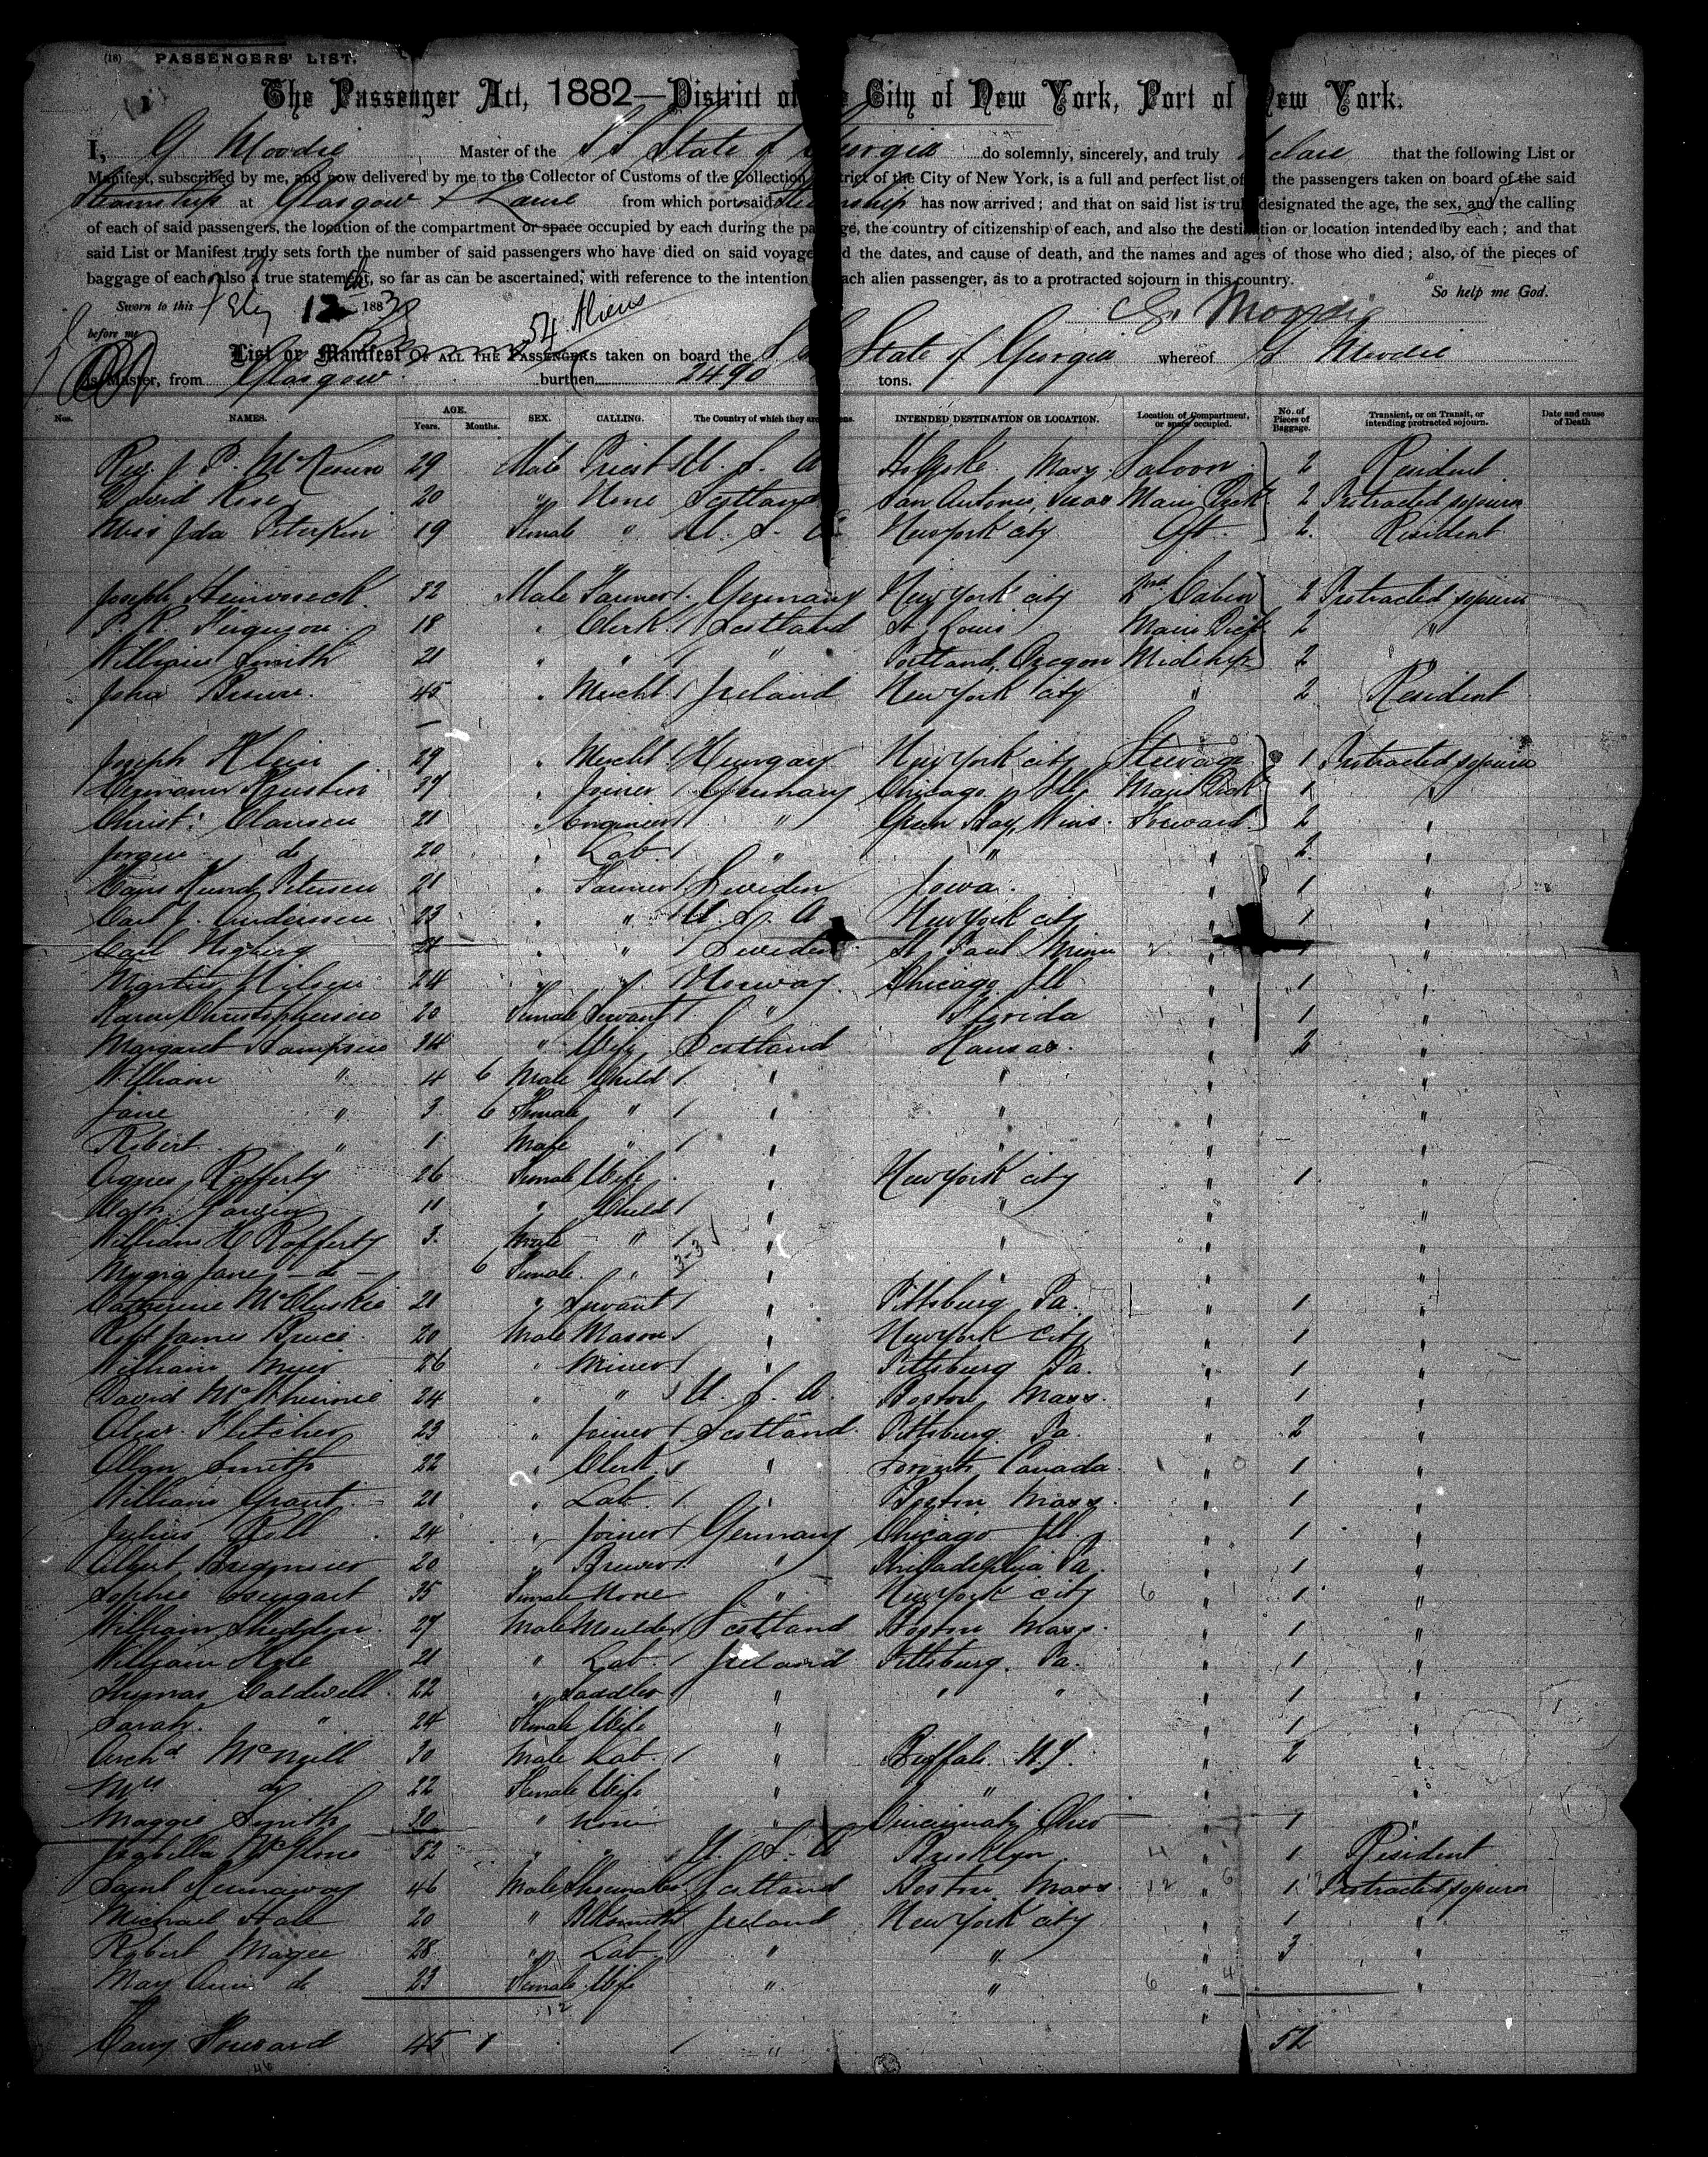 (18) PASSENGERS' LIST.
The Passenger Act, 1882—District of City of New York, Port of New York.
I, G Moodie Master of the S S State of Georgia do solemnly, sincerely, and truly declare that the following List or
Manifest, subscribed by me, and now delivered by me to the Collector of Customs of the Collection District of the City of New York, is a full and perfect list of the passengers taken on board of the said
Steamship at Glasgow & Larne from which port said Steamship has now arrived; and that on said list is truly designated the age, the sex, and the calling
of each of said passengers, the location of the compartment or space occupied by each during the passage, the country of citizenship of each, and also the destination or location intended by each; and that
said List or Manifest truly sets forth the number of said passengers who have died on said voyage and the dates, and cause of death, and the names and ages of those who died; also, of the pieces of
baggage of each, also a true statement, so far as can be ascertained, with reference to the intention each alien passenger, as to a protracted sojourn in this country.
Sworn to this Feby 12th 1883 So help me God.
before me G. Moodie
54 Aliens
List or Manifest OF ALL THE PASSENGERS taken on board the S S State of Georgia whereof G Moodie
is Master, from Glasgow burthen 2490 tons.
Nos. NAMES. AGE. Years. Months. SEX. CALLING. The Country of which they are INTENDED DESTINATION OR LOCATION. Location of Compartment, or space occupied. No. of Pieces of Baggage. Transient, or on Transit, or intending protracted sojourn. Date and cause of Death
Rev. J. P. McKeown 29 Male Priest U. S. A Holyoke Mass Saloon 2 Resident
David Rose 20 " None Scotland San Antonio, Texas Main Deck 2 Protracted sojourn
Miss Ida Peterkin 19 Female " U. S. A New York city Aft. 2 Resident
Joseph 32 Male Farmer Germany New York city 2nd Cabin 2 Protracted sojourn
P. R. Ferguson 18 " Clerk Scotland St. Louis Main Deck 2 "
William Smith 21 " " " Portland, Oregon Midship 2 "
John 45 " Mercht Ireland New York City " 2 Resident
Joseph Klein 29 " Mercht Hungary New York city Steerage 1 Protracted sojourn
Hermann 37 " Joiner Germany Chicago Ill Main Deck 1 "
Christ: Clausen 21 " Engineer " Green Bay, Wins. Forward 2 "
Jorgen do 20 " Lab. " " " 2 "
Hans Petersen 21 " Farmer Sweden Iowa. " 1 "
Carl J. Anderssen 23 " " U. S. A New York city " 1 "
Carl " " Sweden St Paul Minn " 1 "
Martin Nilsen 24 " " Norway Chicago Ill " 1 "
Karen Christophersen 20 Female Servant " Florida " 1 "
Margaret 34 " Wife Scotland Kansas. " 2 "
William " 4 6 Male Child " " " "
Jane " 3 6 Female " " " " "
Robert " 1 Male " " " " "
Agnes Rafferty 26 Female Wife " New York city " 1 "
Cath: 11 " Child " " " "
William H Rafferty 3 Male " " " " "
Jane do 6 Female " " " " "
Catherine McCluskie 21 " Servant " Pittsburg Pa. " 1 "
Robt James Bruce 20 Male Mason " New York City " 1 "
William Muir 26 " Miner " Pittsburg Pa. " 1 "
David McWhinnie 24 " " U. S. A. Boston Mass. " 1 "
Alexr. Fletcher 23 " Joiner Scotland Pittsburg Pa. " 2 "
Allan Smith 22 " Clerk " Toronto Canada " 1 "
William Grant 21 " Lab. " Boston Mass. " 1 "
Julius 24 " Joiner Germany Chicago Ill. " 1 "
Albert 20 " Brewer " Philadelphia Pa. " 1 "
Sophie 35 Female None " New York city " 1 "
William Shedden 27 Male Moulder Scotland Boston Mass. " 1 "
William 21 " Lab. Ireland Pittsburg. Pa. " 1 "
Thomas Caldwell 22 " Saddler " " " " 1 "
Sarah " 24 Female Wife " " 1 "
Archd McNeill 30 Male Lab. " Buffalo N.Y. " 2 "
Mrs do 22 Female Wife " " "
Maggie Smith 30 " None " Cincinnati, Ohio " 1 "
Isabella McGlone 52 " " U. S. A Brooklyn. " 1 Resident
Saml 46 Male Shoemaker Scotland Boston Mass. " 1 Protracted sojourn
Michael 20 " Blksmith Ireland New York city " 1 "
Robert Magee 28 " Lab. " " " 3 "
Mary Ann do 23 Female Wife " " " "
Howard 45 " 52